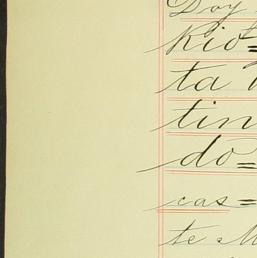 Doy
Kio=
ta
tin
do=
cas=
te M